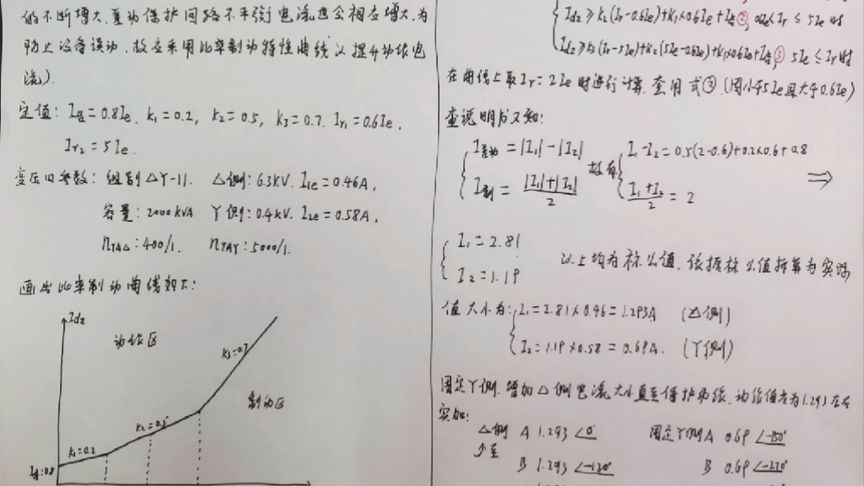 的不断增大,差动保护回路不平衡电流也会相应增大.为
防止设备误动,故应采用比率制动特性曲线以提升动作电
流).
定值: I=0.8Ie. k1=0.2, k2=0.5, k3=0.7. Ir1=0.6Ie.
Ir2=5Ie.
变压器参数: 组别△Y-11. △侧:6.3KV. I1e=0.46A,
容量:2000KVA Y侧:0.4KV. I2e=0.58A,
nTA△:400/1. nTAY:5000/1.
画出比率制动曲线如下:
Idz
动作区
k3=0.7
制动区
k2=0.5
k1=0.2
0.8
Idz≥k2(Ir-0.6Ie)+k1×0.6Ie+I ② 0.6Ie<Ir≤5Ie时
Idz≥k3(Ir-5Ie)+k2(5Ie-0.6Ie)+k1×0.6Ie+I ③ 5Ie≤Ir时
在曲线上取Ir=2Ie时进行计算.套用式②(因小于5Ie且大于0.6Ie)
查说明书又知:
I差动=|I1|-|I2|
I制=|I1|+|I2|/2
故有
I1-I2=0.5(2-0.6)+0.2×0.6+0.8
I1+I2/2=2
⇒
I1=2.81
I2=1.19
以上均为标么值,该据标么值折算为实际
值大小为: I1=2.81×0.46=1.293A (△侧)
I2=1.19×0.58=0.69A. (Y侧)
固定Y侧.增加△侧电流大小直至保护动作.动作值若为1.293左右
实加:
△侧 A 1.293∠0° 固定Y侧A 0.69∠-150°
B 1.293∠-120° B 0.69∠-270°